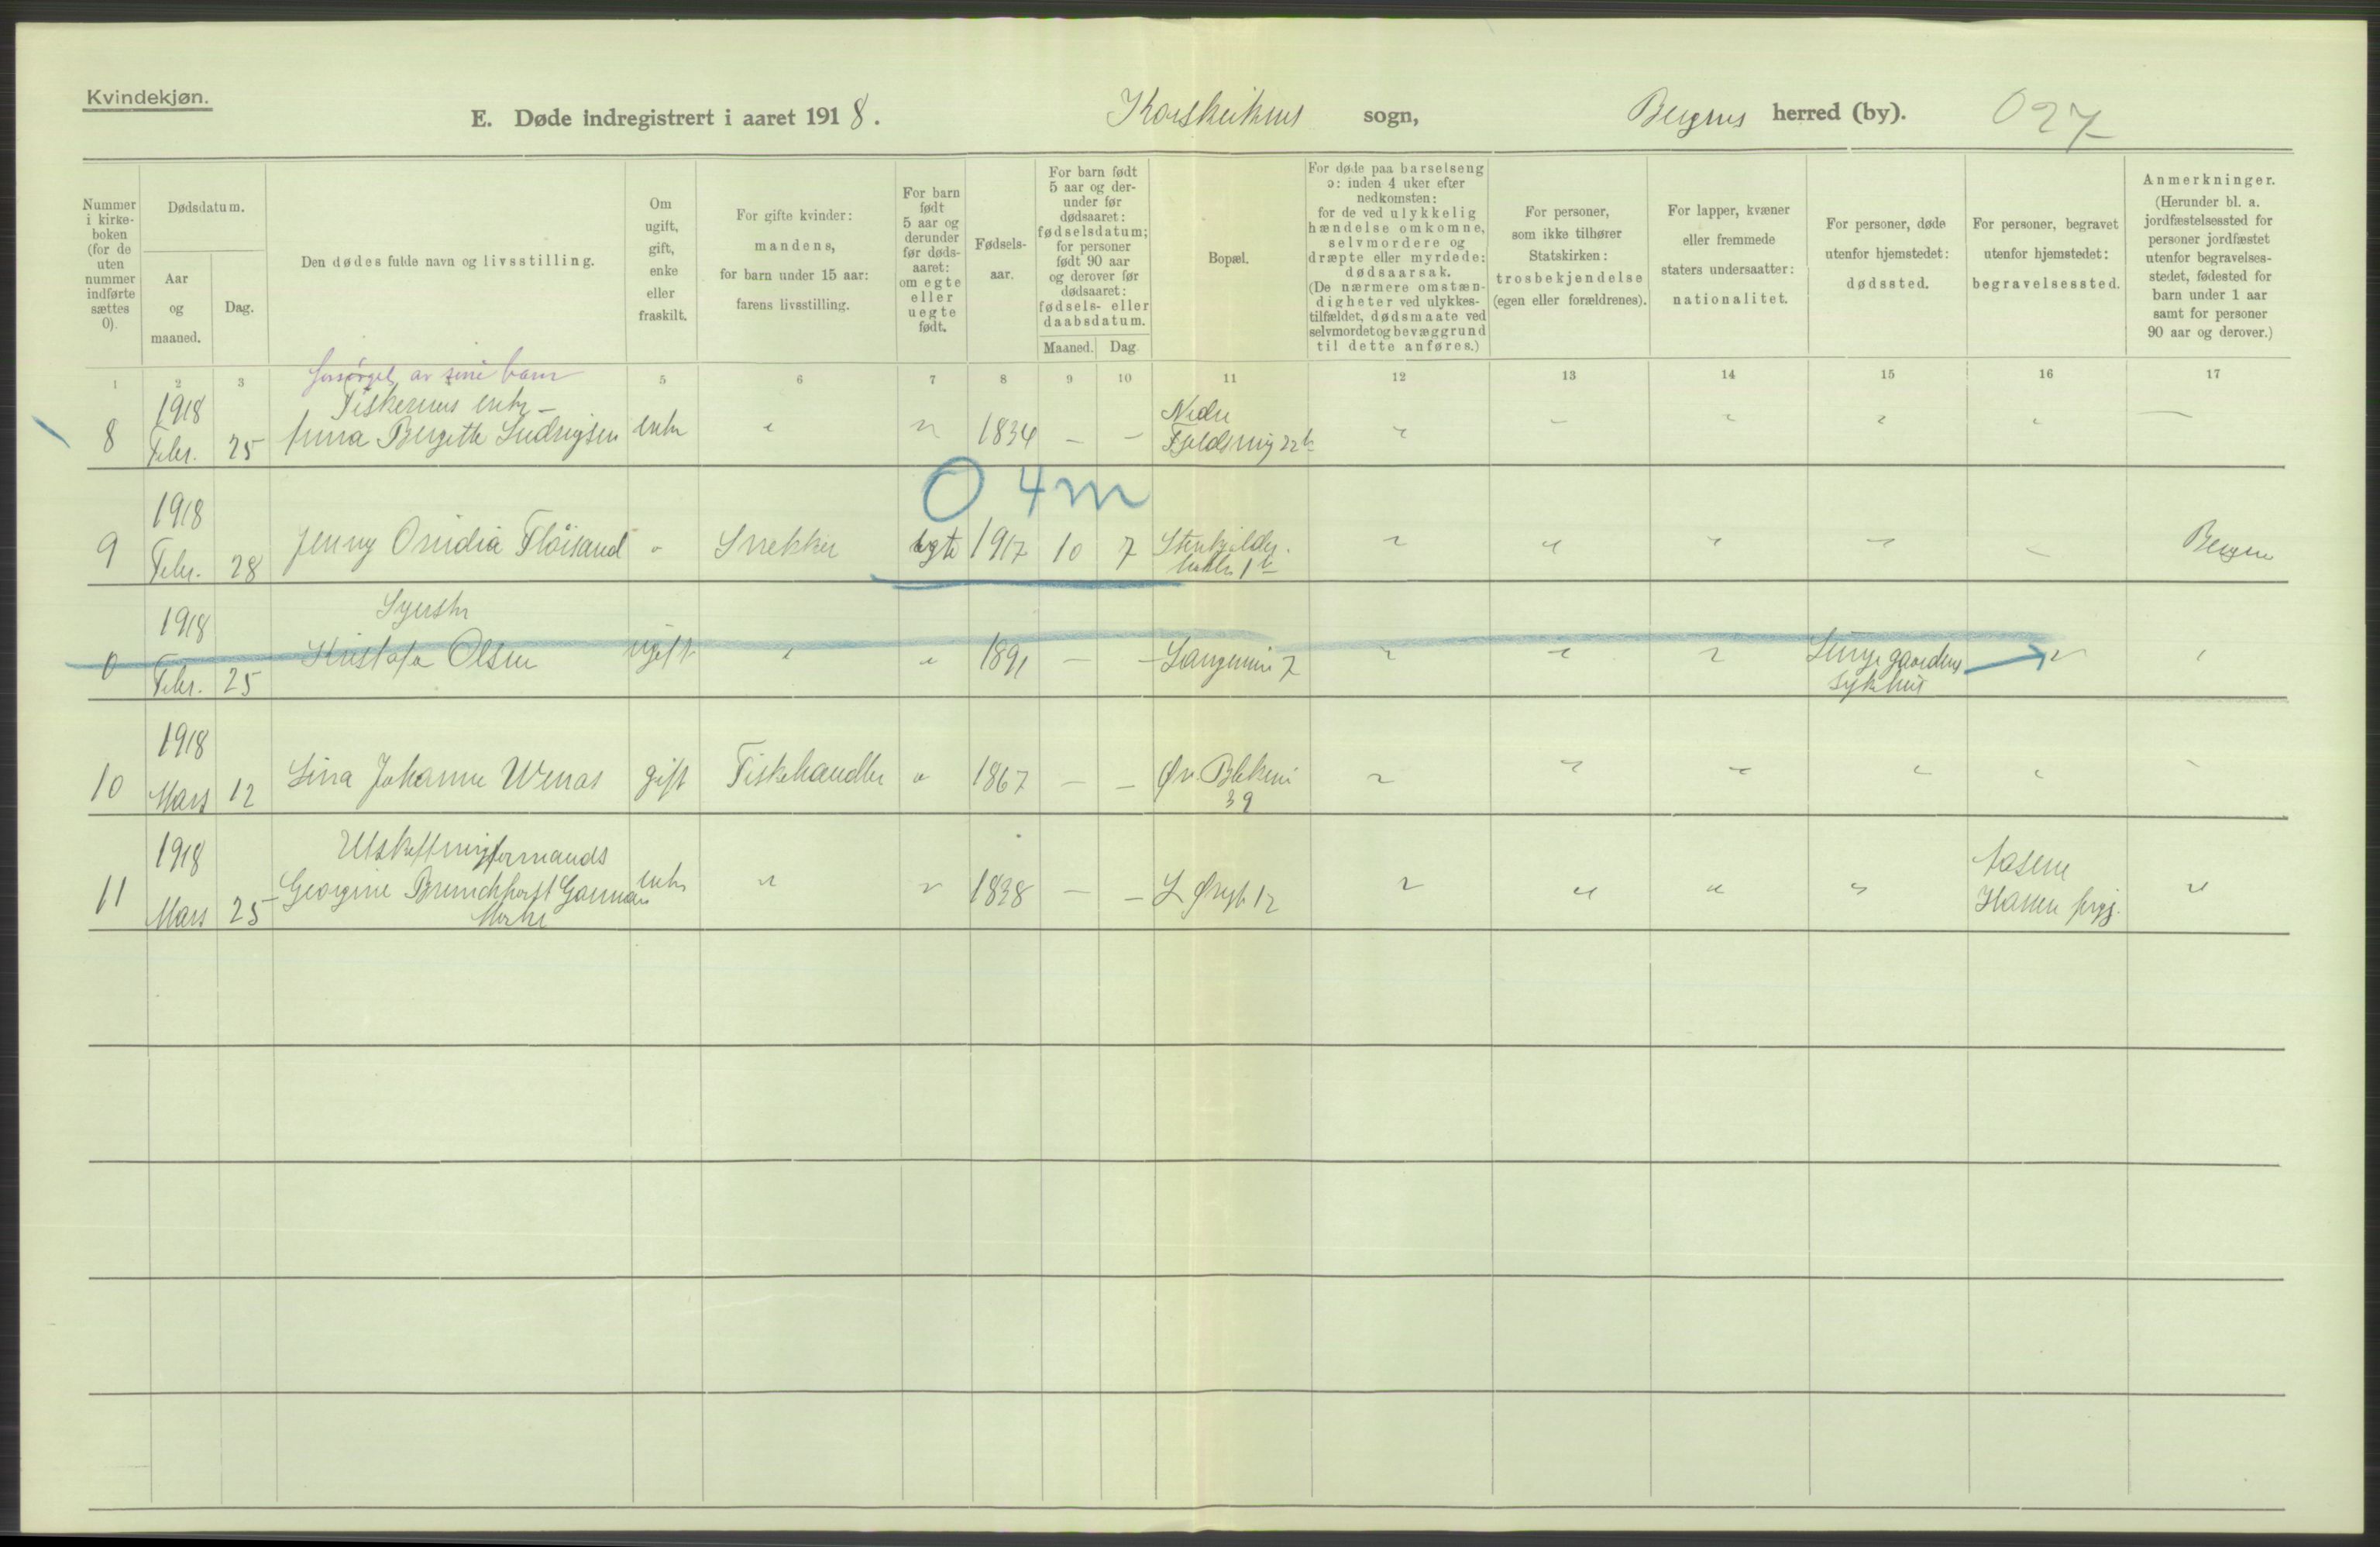 Kvindekjøn.
E. Døde indregistrert i aaret 1918. Korskirkens sogn, Bergens herred (by). 027
Nummer i kirkeboken (for de uten nummer indførte sættes 0).
Dødsdatum.
Aar og maaned.
Dag.
Den dødes fulde navn og livsstilling.
Om ugift, gift, enke eller fraskilt.
For gifte kvinder: mandens, for barn under 15 aar: farens livsstilling.
For barn født 5 aar og derunder før dødsaaret: om egte eller uegte født.
Fødselsaar.
For barn født 5 aar og derunder før dødsaaret: fødselsdatum; for personer født 90 aar og derover før dødsaaret: fødsels- eller daabsdatum.
Maaned. Dag.
Bopæl.
For døde paa barselseng ɔ: inden 4 uker efter nedkomsten: for de ved ulykkelig hændelse omkomne, selvmordere og dræpte eller myrdede: dødsaarsak. (De nærmere omstændigheter ved ulykkestilfældet, dødsmaate ved selvmordet og bevæggrund til dette anføres.)
For personer, som ikke tilhører Statskirken: trosbekjendelse (egen eller forældrenes).
For lapper, kvæner eller fremmede staters undersaatter: nationalitet.
For personer, døde utenfor hjemstedet: dødssted.
For personer, begravet utenfor hjemstedet: begravelsessted.
Anmerkninger. (Herunder bl. a. jordfæstelsessted for personer jordfæstet utenfor begravelsesstedet, fødested for barn under 1 aar samt for personer 90 aar og derover.)
1 2 3 5 6 7 8 9 10 11 12 13 14 15 16 17
forsørget av sine barn
1918 Fiskermus enke – Nedre
8 Febr. 25 Anna Bergitte Ludvigsen enke " " 1834 – – Fjeldsmug 22b " – " " " –
0 4m
1918
9 Febr. 28 Jenny Ovidia Fløisand " Snekker egte 1917 10 7 Stenkjelder- " " " " – Bergen
1b
1918 Syerske
0 Febr. 25 Kristofa Olsen ugift " " 1891 – – Langemin 7 " " " Lungegaardens " "
sykehus
1918
10 Mars 12 Lina Johanne Wenas gift Fiskehandler " 1867 – – Øv. Blekevei " " " " " "
39
1918 Utskiftningsformands
11 Mars 25 Georgine Brunchhorst Garman enke " " 1838 – – L. Øvreg. 12 " " " " Aasene "
Hamre prgj.